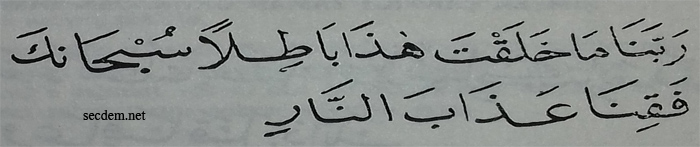 رَبَّنَا مَا خَلَقْتَ هٰذَا بَاطِلًا سُبْحَانَكَ
فَقِنَا عَذَابَ النَّارِ
secdem.net